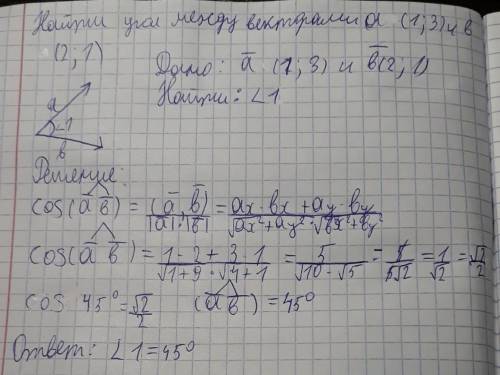 Найти угол между векторами a (1;3) и в
(2;1)
Дано: a̅ (1;3) и b̅(2;1)
Найти: ∠1
a
∠1
b
Решение:
cos(a̅ b̅) = (a̅, b̅)/|a̅|·|b̅| = ax·bx + ay·by/√ax²+ay²·√bx²+by²
cos(a̅ b̅) = 1-2+3·1/√1+9·√4+1 = 5/√10-√5 = 5/5√2 = 1/√2 = √2/2
cos 45° = √2/2 (a̅ b̅) = 45°
Ответ: ∠1 = 45°